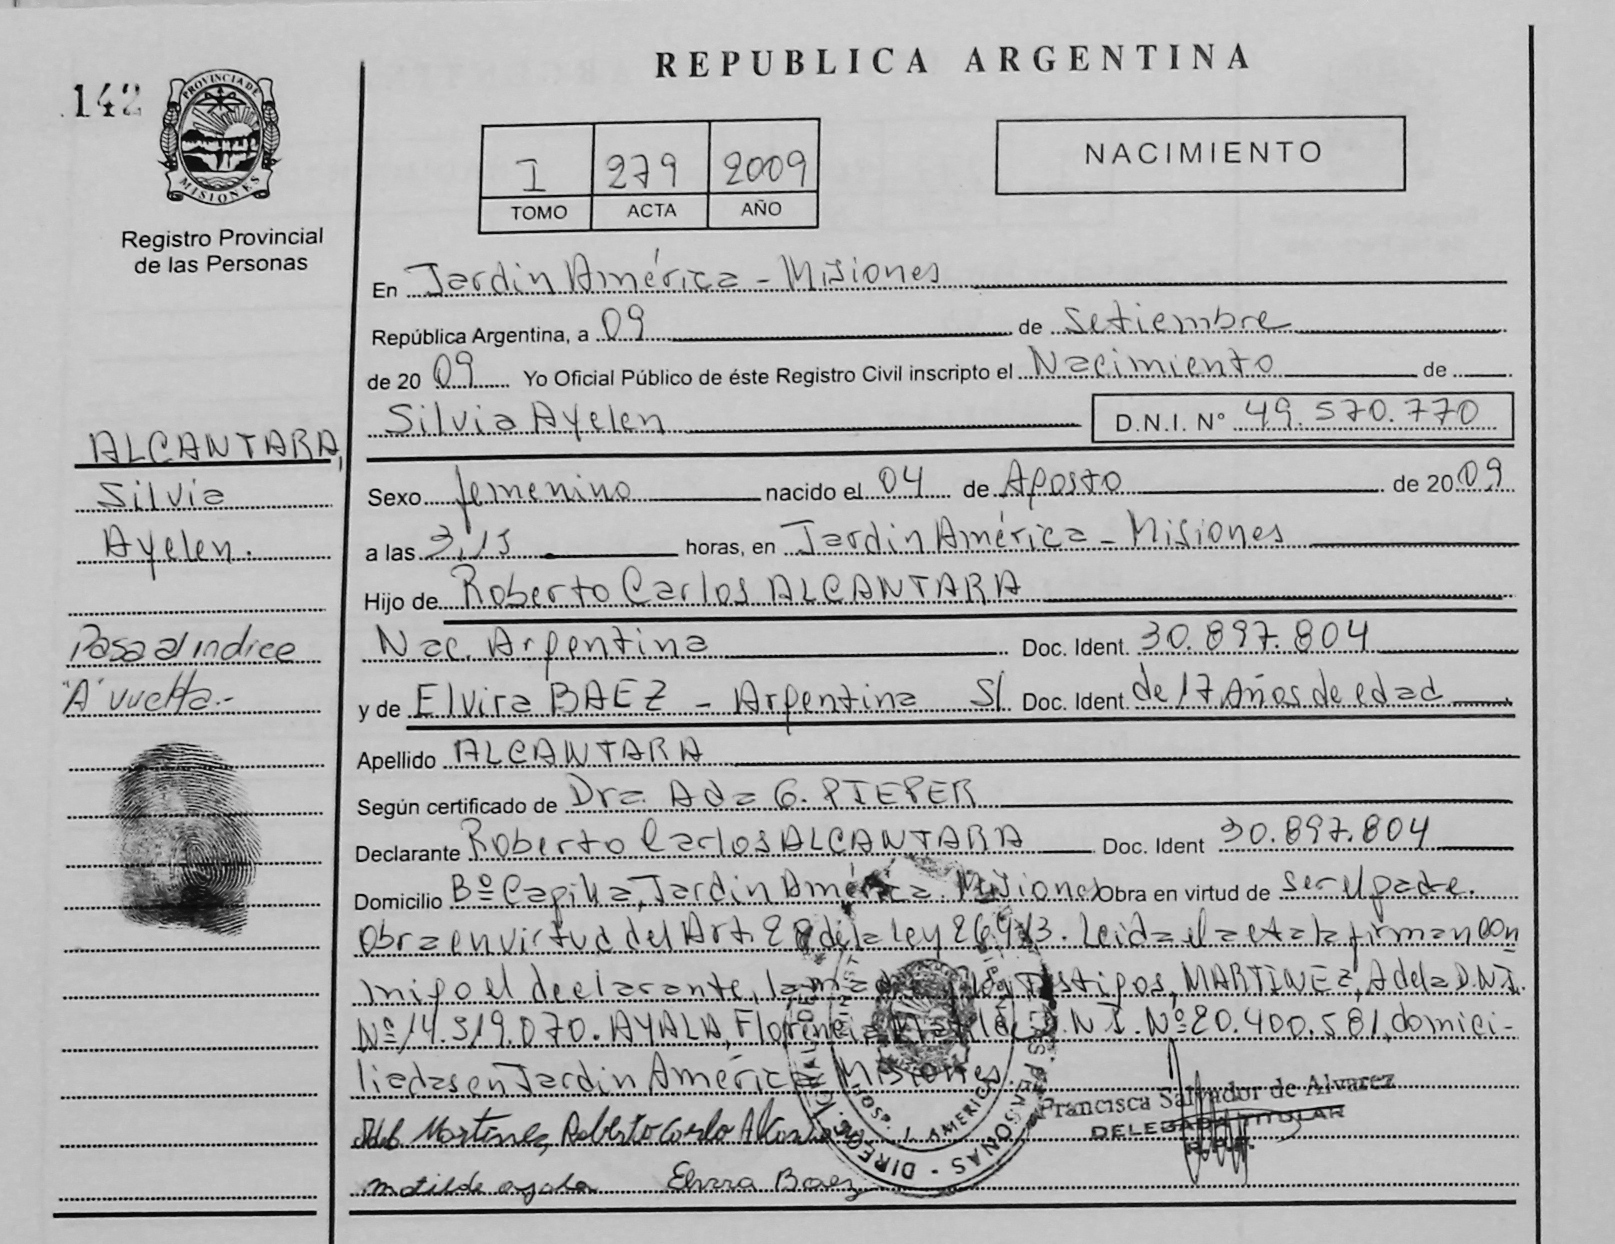 REPUBLICA ARGENTINA
142
PROVINCIA DE
MISIONES
Registro Provincial
de las Personas
I 279 2009
TOMO ACTA AÑO
NACIMIENTO
En Jardin América - Misiones
República Argentina, a 09 de Setiembre
de 20 09 Yo Oficial Público de éste Registro Civil inscripto el Nacimiento de
Silvia Ayelen D.N.I. Nº 49.570.770
ALCANTARA,
Silvia
Ayelen.
Pasa al indice
"A" vuelta.-
Sexo femenino nacido el 04 de Agosto de 20 09
a las 3,15 horas, en Jardin América - Misiones
Hijo de Roberto Carlos ALCANTARA
Nac. Argentina Doc. Ident. 30.897.804
y de Elvira BAEZ - Argentina S/ Doc. Ident. de 17 Años de edad
Apellido ALCANTARA
Según certificado de Dra. Ada G. PIEPER
Declarante Roberto Carlos ALCANTARA Doc. Ident 30.897.804
Domicilio Bº Capilla, Jardin América. Misiones Obra en virtud de ser el padre.
Obra en virtud del Art. de la Ley Leida el acta la firman con
migo el declarante, la Testigos, MARTINEZ, Adela D.N.I.
Nº 14.319.070. AYALA, Florencia D.N.I. Nº 20.400.581, domici-
liadas en Jardin América Misiones.
Martinez Roberto Carlo
Matilde ayala Elvira Baez
Francisca Salvador de Alvarez
DELEGADA TITULAR
R.P.P.